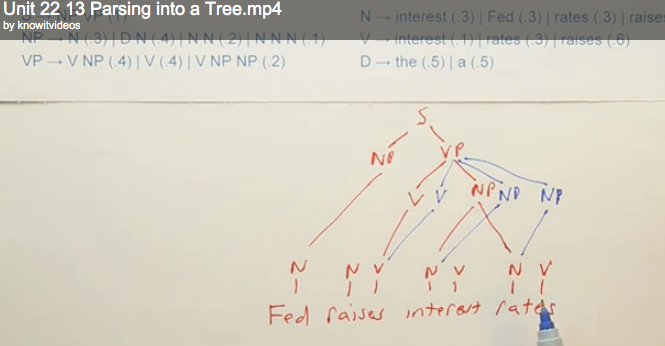 Unit 22 13 Parsing into a Tree.mp4
by knowitvideos
S → NP VP (1)
NP → N (.3) | D N (.4) | N N (.2) | N N N (.1)
VP → V NP (.4) | V (.4) | V NP NP (.2)
N → interest (.3) | Fed (.3) | rates (.3) | raises
V → interest (.1) | rates (.3) | raises (.6)
D → the (.5) | a (.5)
S
NP VP
V V NP NP NP
N N V N V N V
Fed raises interest rates